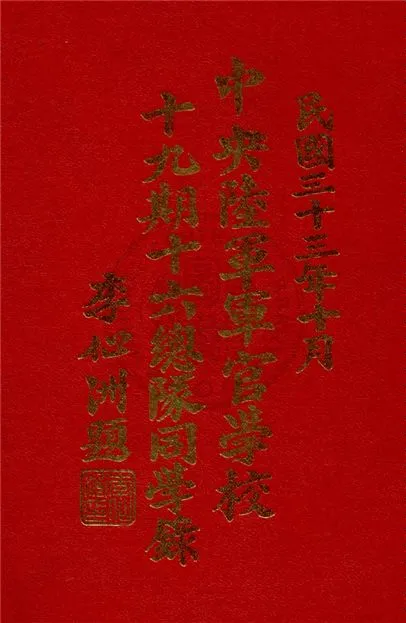 民國三十三年十月
中央陸軍軍官學校
十九期十六總隊同學錄
李心洲題